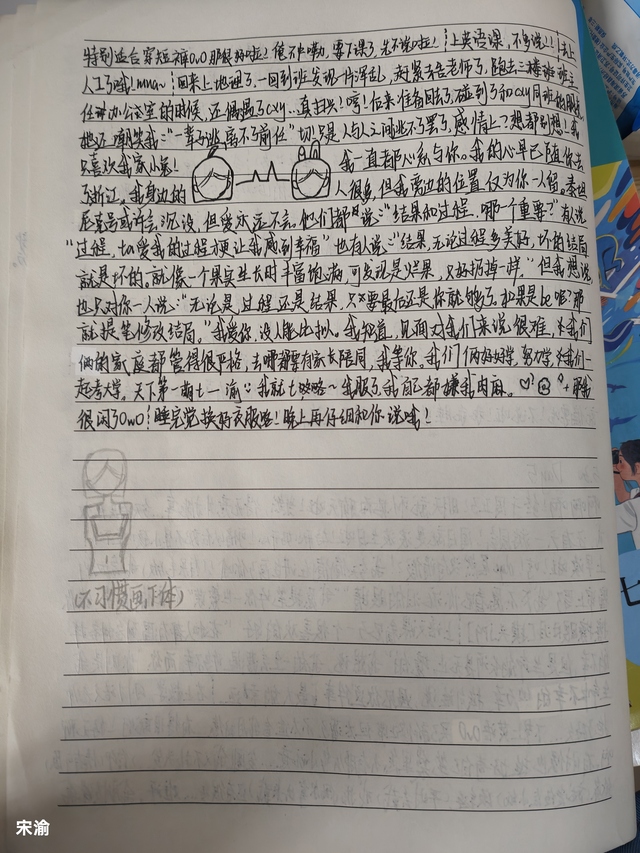 特别适合穿短裤OvO那很好啦！俺不中嘞，要下课了，先不说啦！上英语课，不多说！！去上
人工了哦！mua~ 回来上地理了，一回到班发现一片浑乱，赶紧去告老师了，跑去三楼班主
任讲办公室的时候，还偶遇了cxy…真扫兴！哼！后来准备回去了，碰到了和cxy同班的朋友，
她还嘲笑我：“一辈子逃离不了前任”切！只是人与人之间北不了罢了，感情上？想都别想！我
只喜欢我家小兔！ 我一直都心系与你。我的心早已随你去
了浙江。我身边的 人很多，但我旁边的位置，仅为你一人留。泰坦
尼克号或许会沉没，但爱永远不会。他们都说：“结果和过程，哪一个重要？”有人说
“过程，ta爱我的过程便让我感到幸福”也有人说：“结果，无论过程多美好，坏的结局
就是坏的。就像一个果实生长时丰富饱满，可发现是烂果，只好扔掉一样。”但我想说，
也只对你一人说：“无论是，过程还是结果，只要最后还是你就够了。如果是be呢？那
就提笔修改结局。”我爱你，没人能比拟。我知道，见面对我们来说很难，我们
俩的家庭都管得很严格，去哪都要有家长陪同，我等你。我们俩好好学，努力学，我们一
起考大学。天下第一萌七一渝：我就七咯咯~我服了我自己都嫌我肉麻。 那我
很闪了OwO！睡完觉换好衣服咯！晚上再仔细和你说哦！
（不习惯画下体）
宋渝